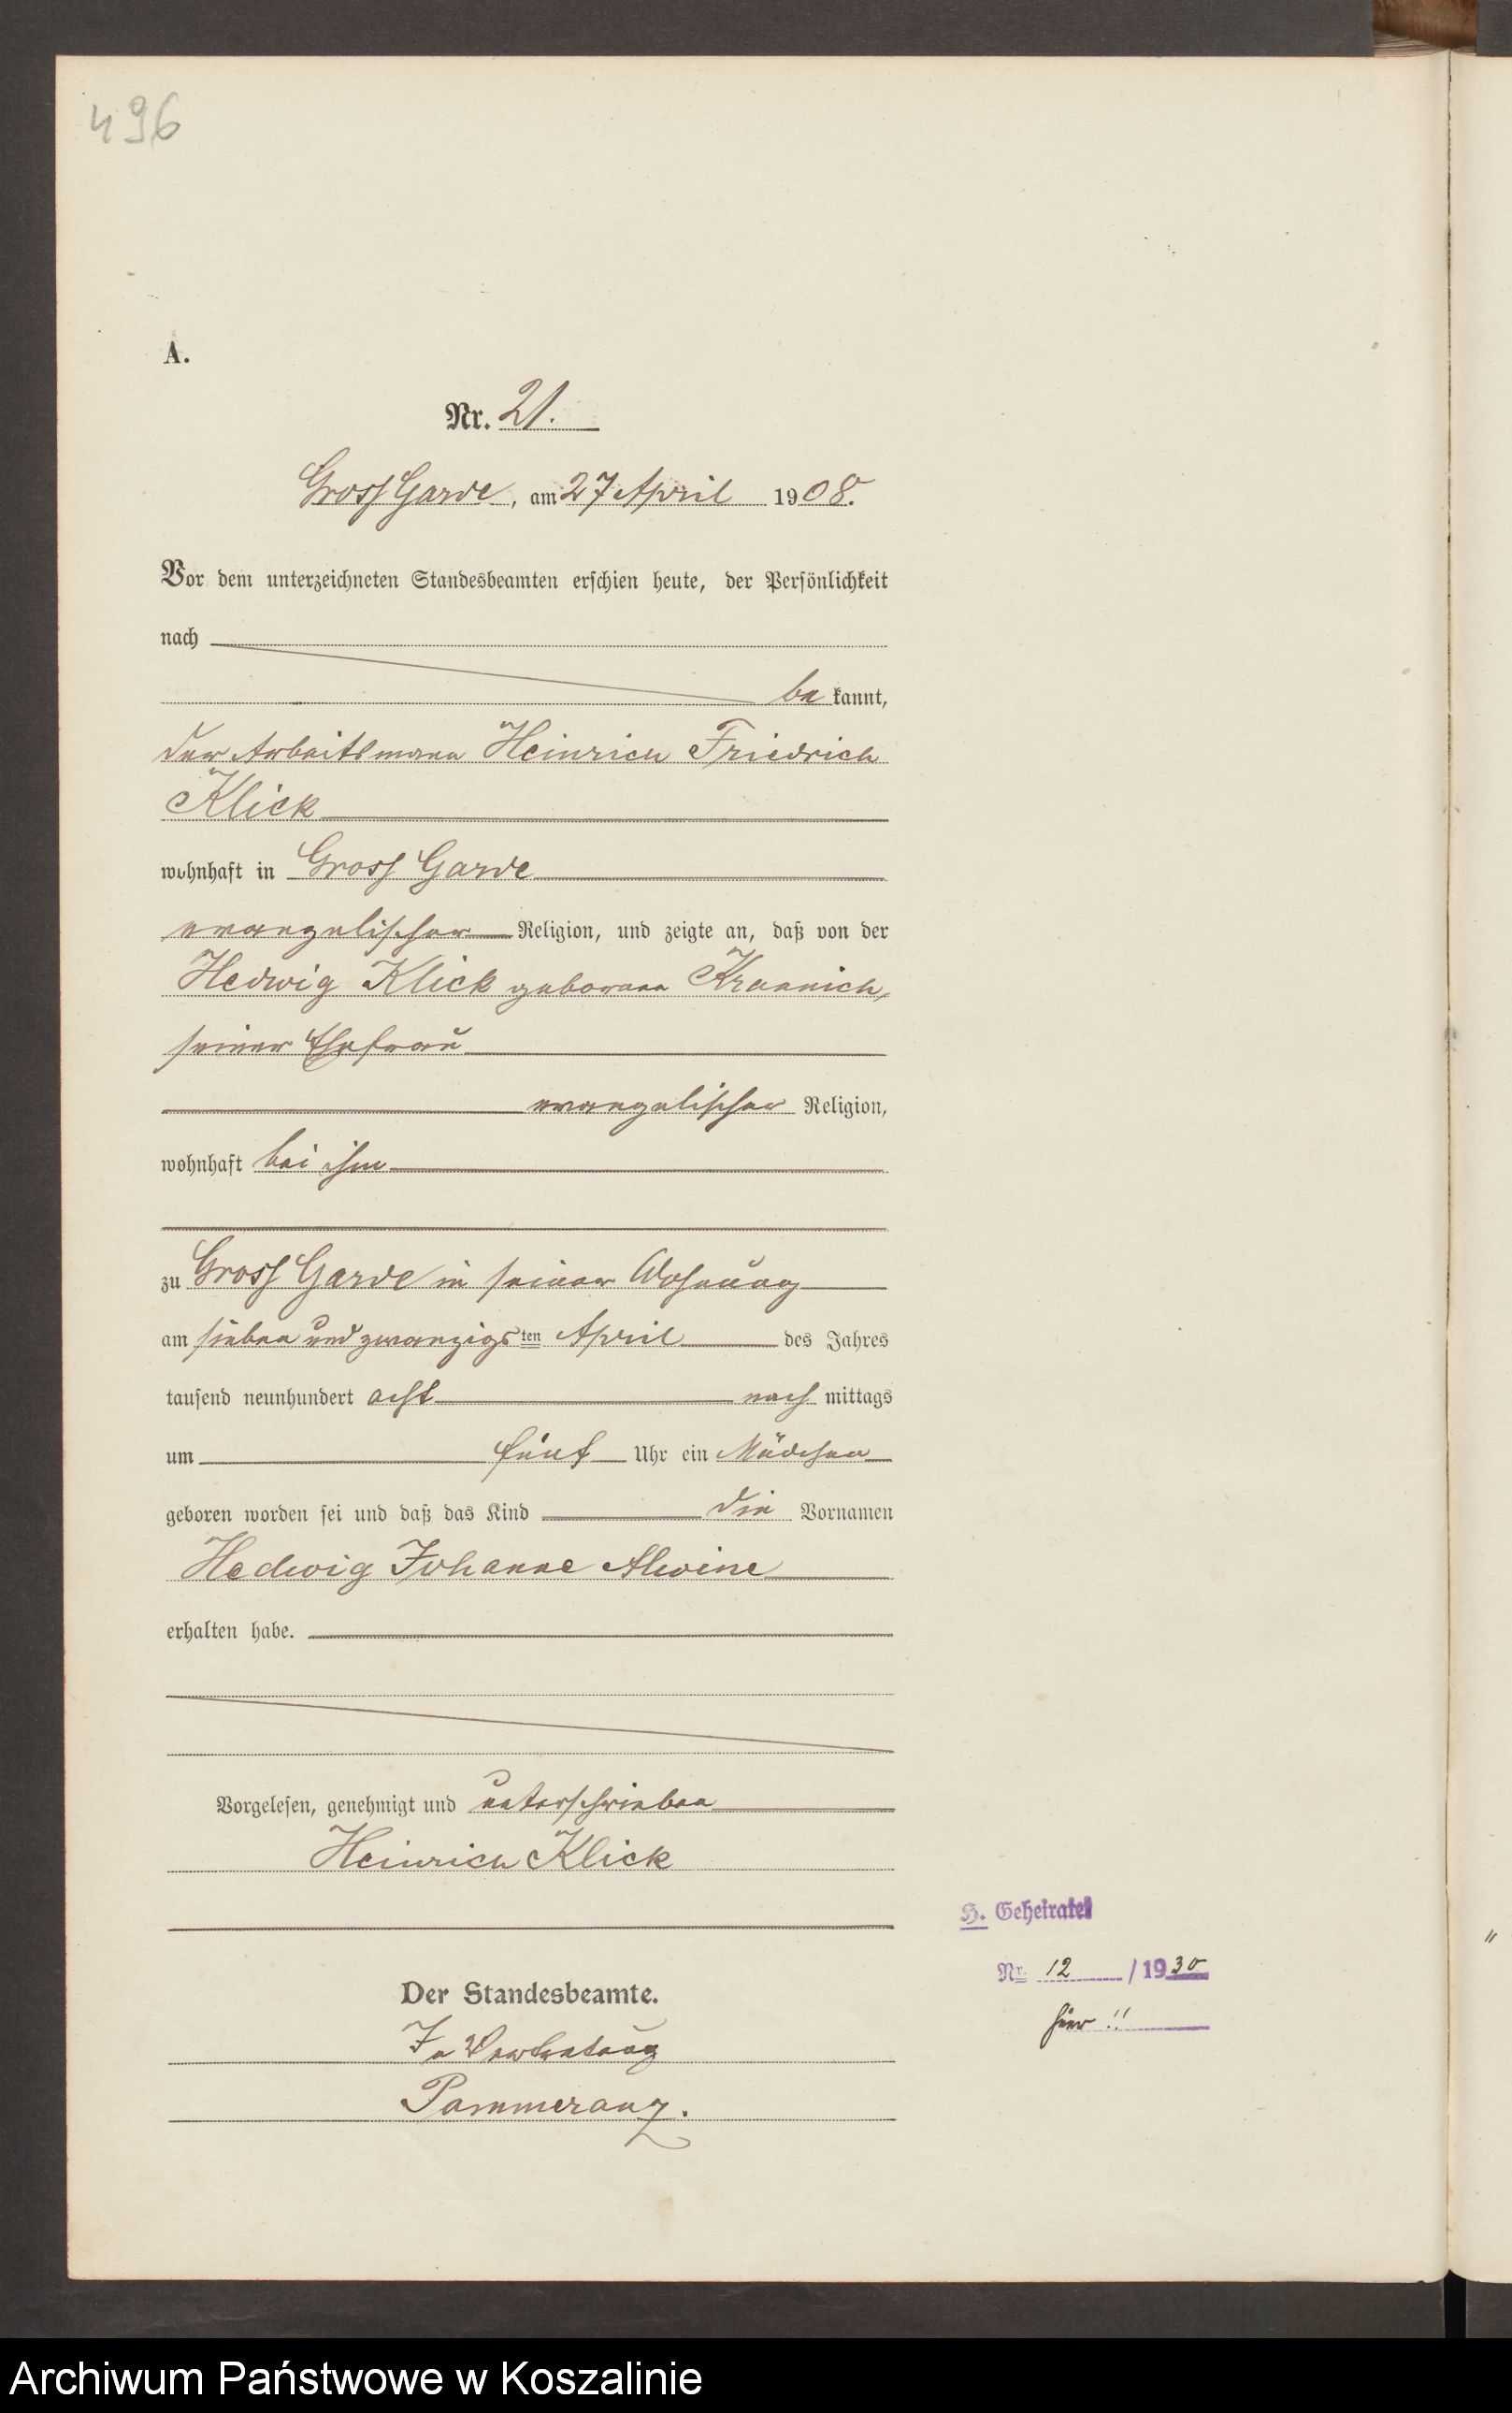 496
A.
Nr. 21.
Gross Garde, am 27 April 1908.
Vor dem unterzeichneten Standesbeamten erschien heute, der Persönlichkeit
nach
be kannt,
der Arbeitsmann Heinrich Friedrich
Klick
wohnhaft in Gross Garde
evangelischer Religion, und zeigte an, daß von der
Hedwig Klick geborenen Krannich,
seiner Ehefrau
evangelischer Religion,
wohnhaft bei ihm
zu Gross Garde in seiner Wohnung
am sieben und zwanzigsten April des Jahres
tausend neunhundert acht nach mittags
um fünf Uhr ein Mädchen
geboren worden sei und daß das Kind die Vornamen
Hedwig Johanne Alwine
erhalten habe.
Vorgelesen, genehmigt und unterschrieben
Heinrich Klick
H. Geheiratet
Nr. 12 / 1930
hier !!
Der Standesbeamte.
In Vertretung
Pommeranz.
Archiwum Państwowe w Koszalinie